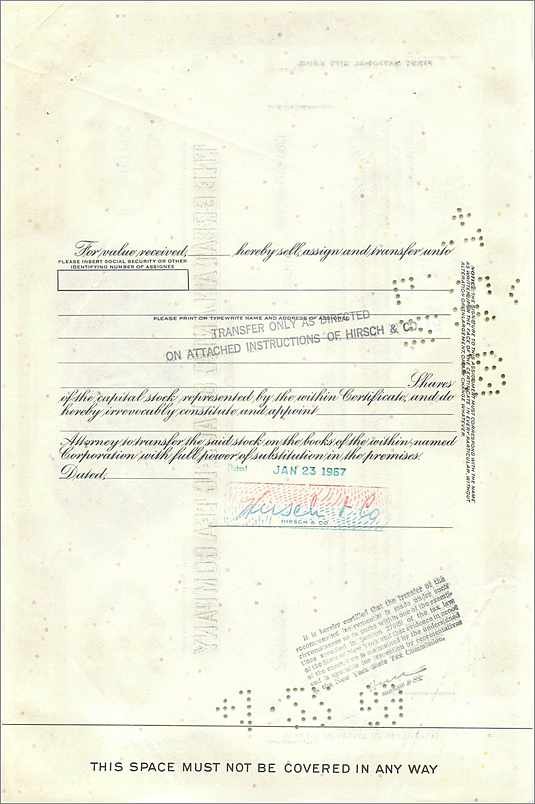 For value received, hereby sell, assign and transfer unto
PLEASE INSERT SOCIAL SECURITY OR OTHER
IDENTIFYING NUMBER OF ASSIGNEE
PLEASE PRINT OR TYPEWRITE NAME AND ADDRESS OF ASSIGNEE
TRANSFER ONLY AS DIRECTED
ON ATTACHED INSTRUCTIONS OF HIRSCH & CO.
Shares
of the capital stock represented by the within Certificate, and do
hereby irrevocably constitute and appoint
Attorney to transfer the said stock on the books of the within named
Corporation with full power of substitution in the premises.
Dated,
Dated JAN 23 1967
Hirsch & Co
HIRSCH & CO.
NOTICE: THE SIGNATURE TO THIS ASSIGNMENT MUST CORRESPOND WITH THE NAME
AS WRITTEN UPON THE FACE OF THE CERTIFICATE IN EVERY PARTICULAR, WITHOUT
ALTERATION OR ENLARGEMENT OR ANY CHANGE WHATEVER.
It is hereby certified that the transfer of the
of the State of New York and that evidence in proof
by the New York State Tax Commission.
THIS SPACE MUST NOT BE COVERED IN ANY WAY